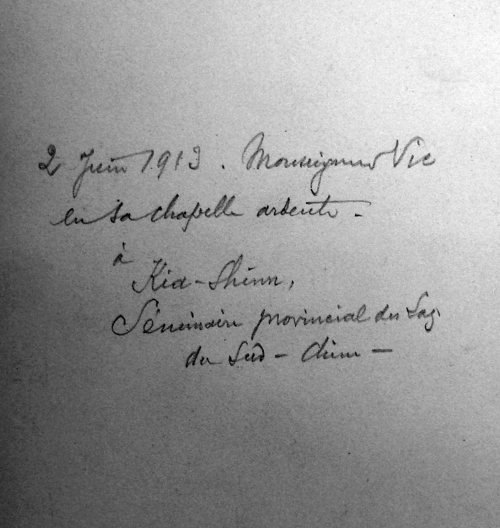 2 Juin 1913. Monseigneur Vic
en sa chapelle ardente -
à
Kia-Shinn,
Séminaire provincial du
du Sud - Chine -